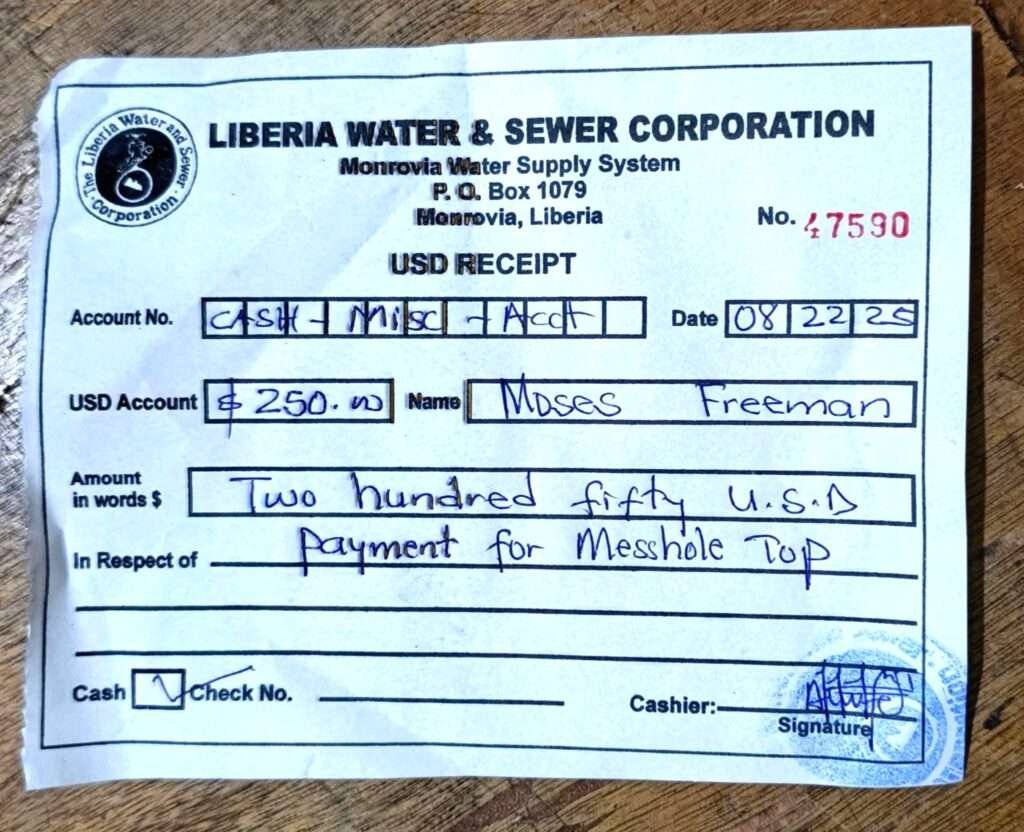 The Liberia Water and Sewer Corporation
LIBERIA WATER & SEWER CORPORATION
Monrovia Water Supply System
P. O. Box 1079
Monrovia, Liberia
No. 47590
USD RECEIPT
Account No. CASH - Misc - Acct Date 08 22 25
USD Account $ 250.00 Name Moses Freeman
Amount
in words $ Two hundred fifty U.S.D
In Respect of payment for Messhole Top
Cash Check No.
Cashier:
Signature